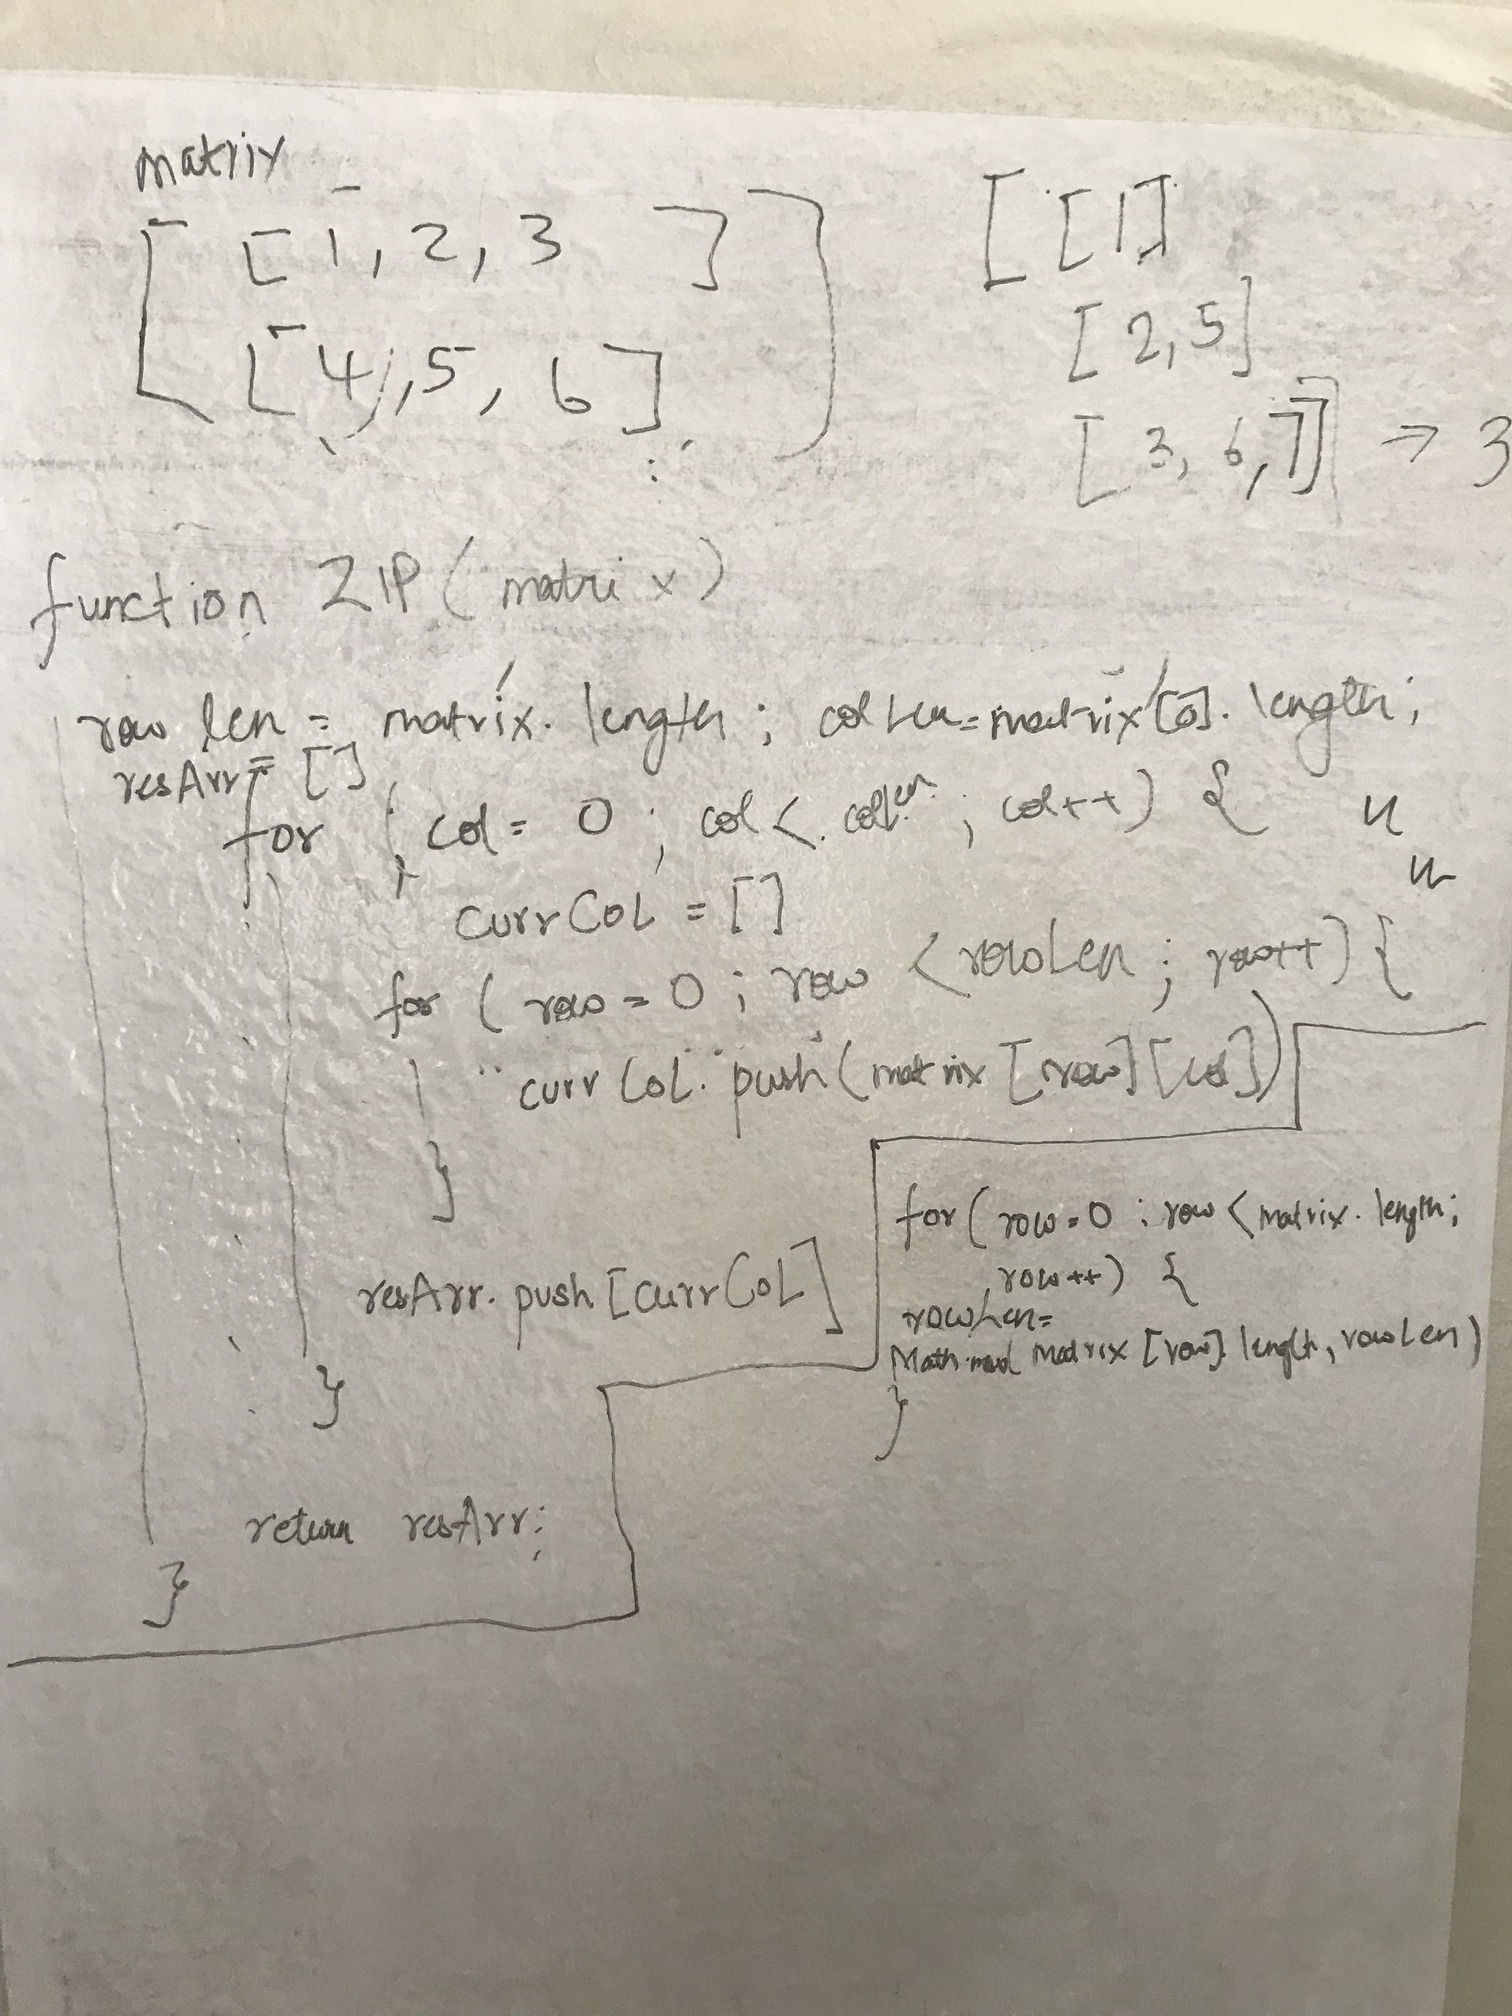 matrix
[ [ 1, 2, 3 ]
[ 4, 5, 6 ] ]
[ [1]
[ 2, 5]
[ 3, 6, 7]] => 3
function ZIP ( matrix )
row len = matrix. length ; colLen = matrix[0]. length ;
resArr = []
for ( col = 0 ; col < colLen ; col++ ) {
currCol = []
for ( row = 0 ; row < rowLen ; row++ ) {
currCol. push ( matrix [row] [col])
}
resArr. push [currCol]
}
return resArr;
}
for ( row = 0 ; row < matrix. length ;
row ++ ) {
rowLen =
Math matrix [row]. length, rowLen )
}